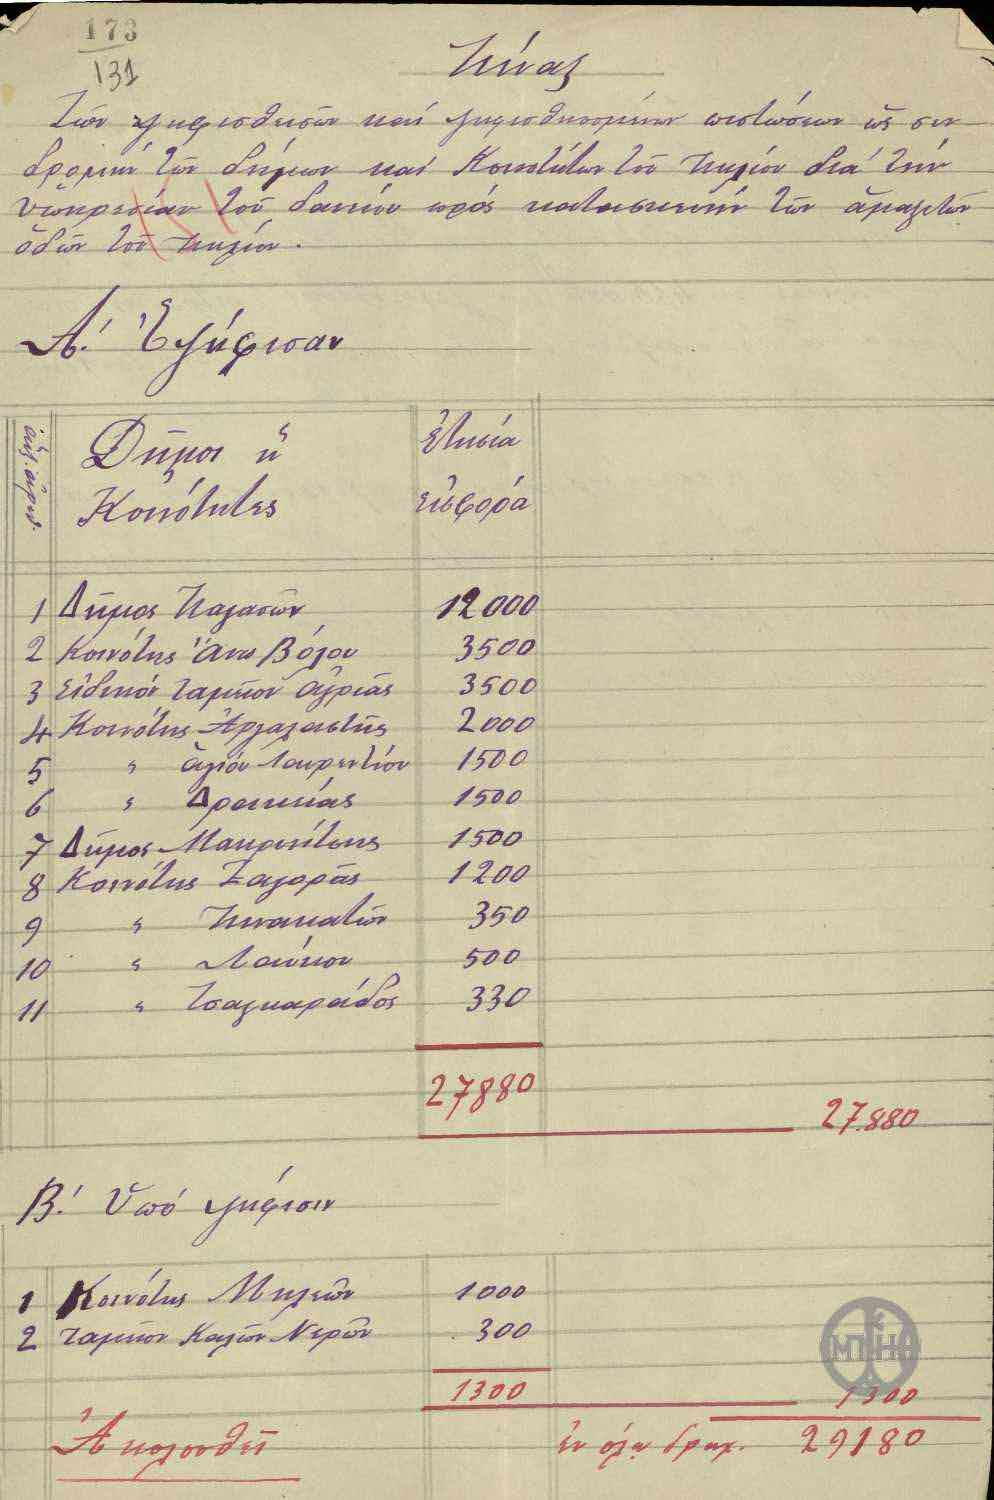 173
131
Πίναξ
Τῶν ψηφισθεισῶν καί ψηφισθησομένων πιστώσεων ὡς συν
δρομήν τῶν δήμων καί Κοινοτήτων τοῦ Πηλίου διά τήν
ὑπηρεσίαν τοῦ δανείου πρός κατασκευήν τῶν ἁμαξιτῶν
ὁδῶν τοῦ Πηλίου.
Α.' Ἐψήφισαν
αὔξ. ἀριθ. Δῆμοι ἤ Ἐτησία
Κοινότητες εἰσφορά
1 Δῆμος Παγασῶν 12000
2 Κοινότης Ἄνω Βόλου 3500
3 Εἰδικόν Ταμεῖον Ἀγριᾶς 3500
4 Κοινότης Ἀργαλαστῆς 2000
5 " Ἁγίου Λαυρεντίου 1500
6 " Δρακείας 1500
7 Δῆμος Μακρινίτσης 1500
8 Κοινότης Ζαγορᾶς 1200
9 " Πινακατῶν 350
10 " Λαύκου 500
11 " Τσαγκαράδος 330
27880
27.880
Β.' Ὑπό ψήφισιν
1 Κοινότης Μηλεῶν 1000
2 Ταμεῖον Καλῶν Νερῶν 300
1300 1300
Ἀκολουθεῖ ἐν ὅλῳ δραχ. 29180